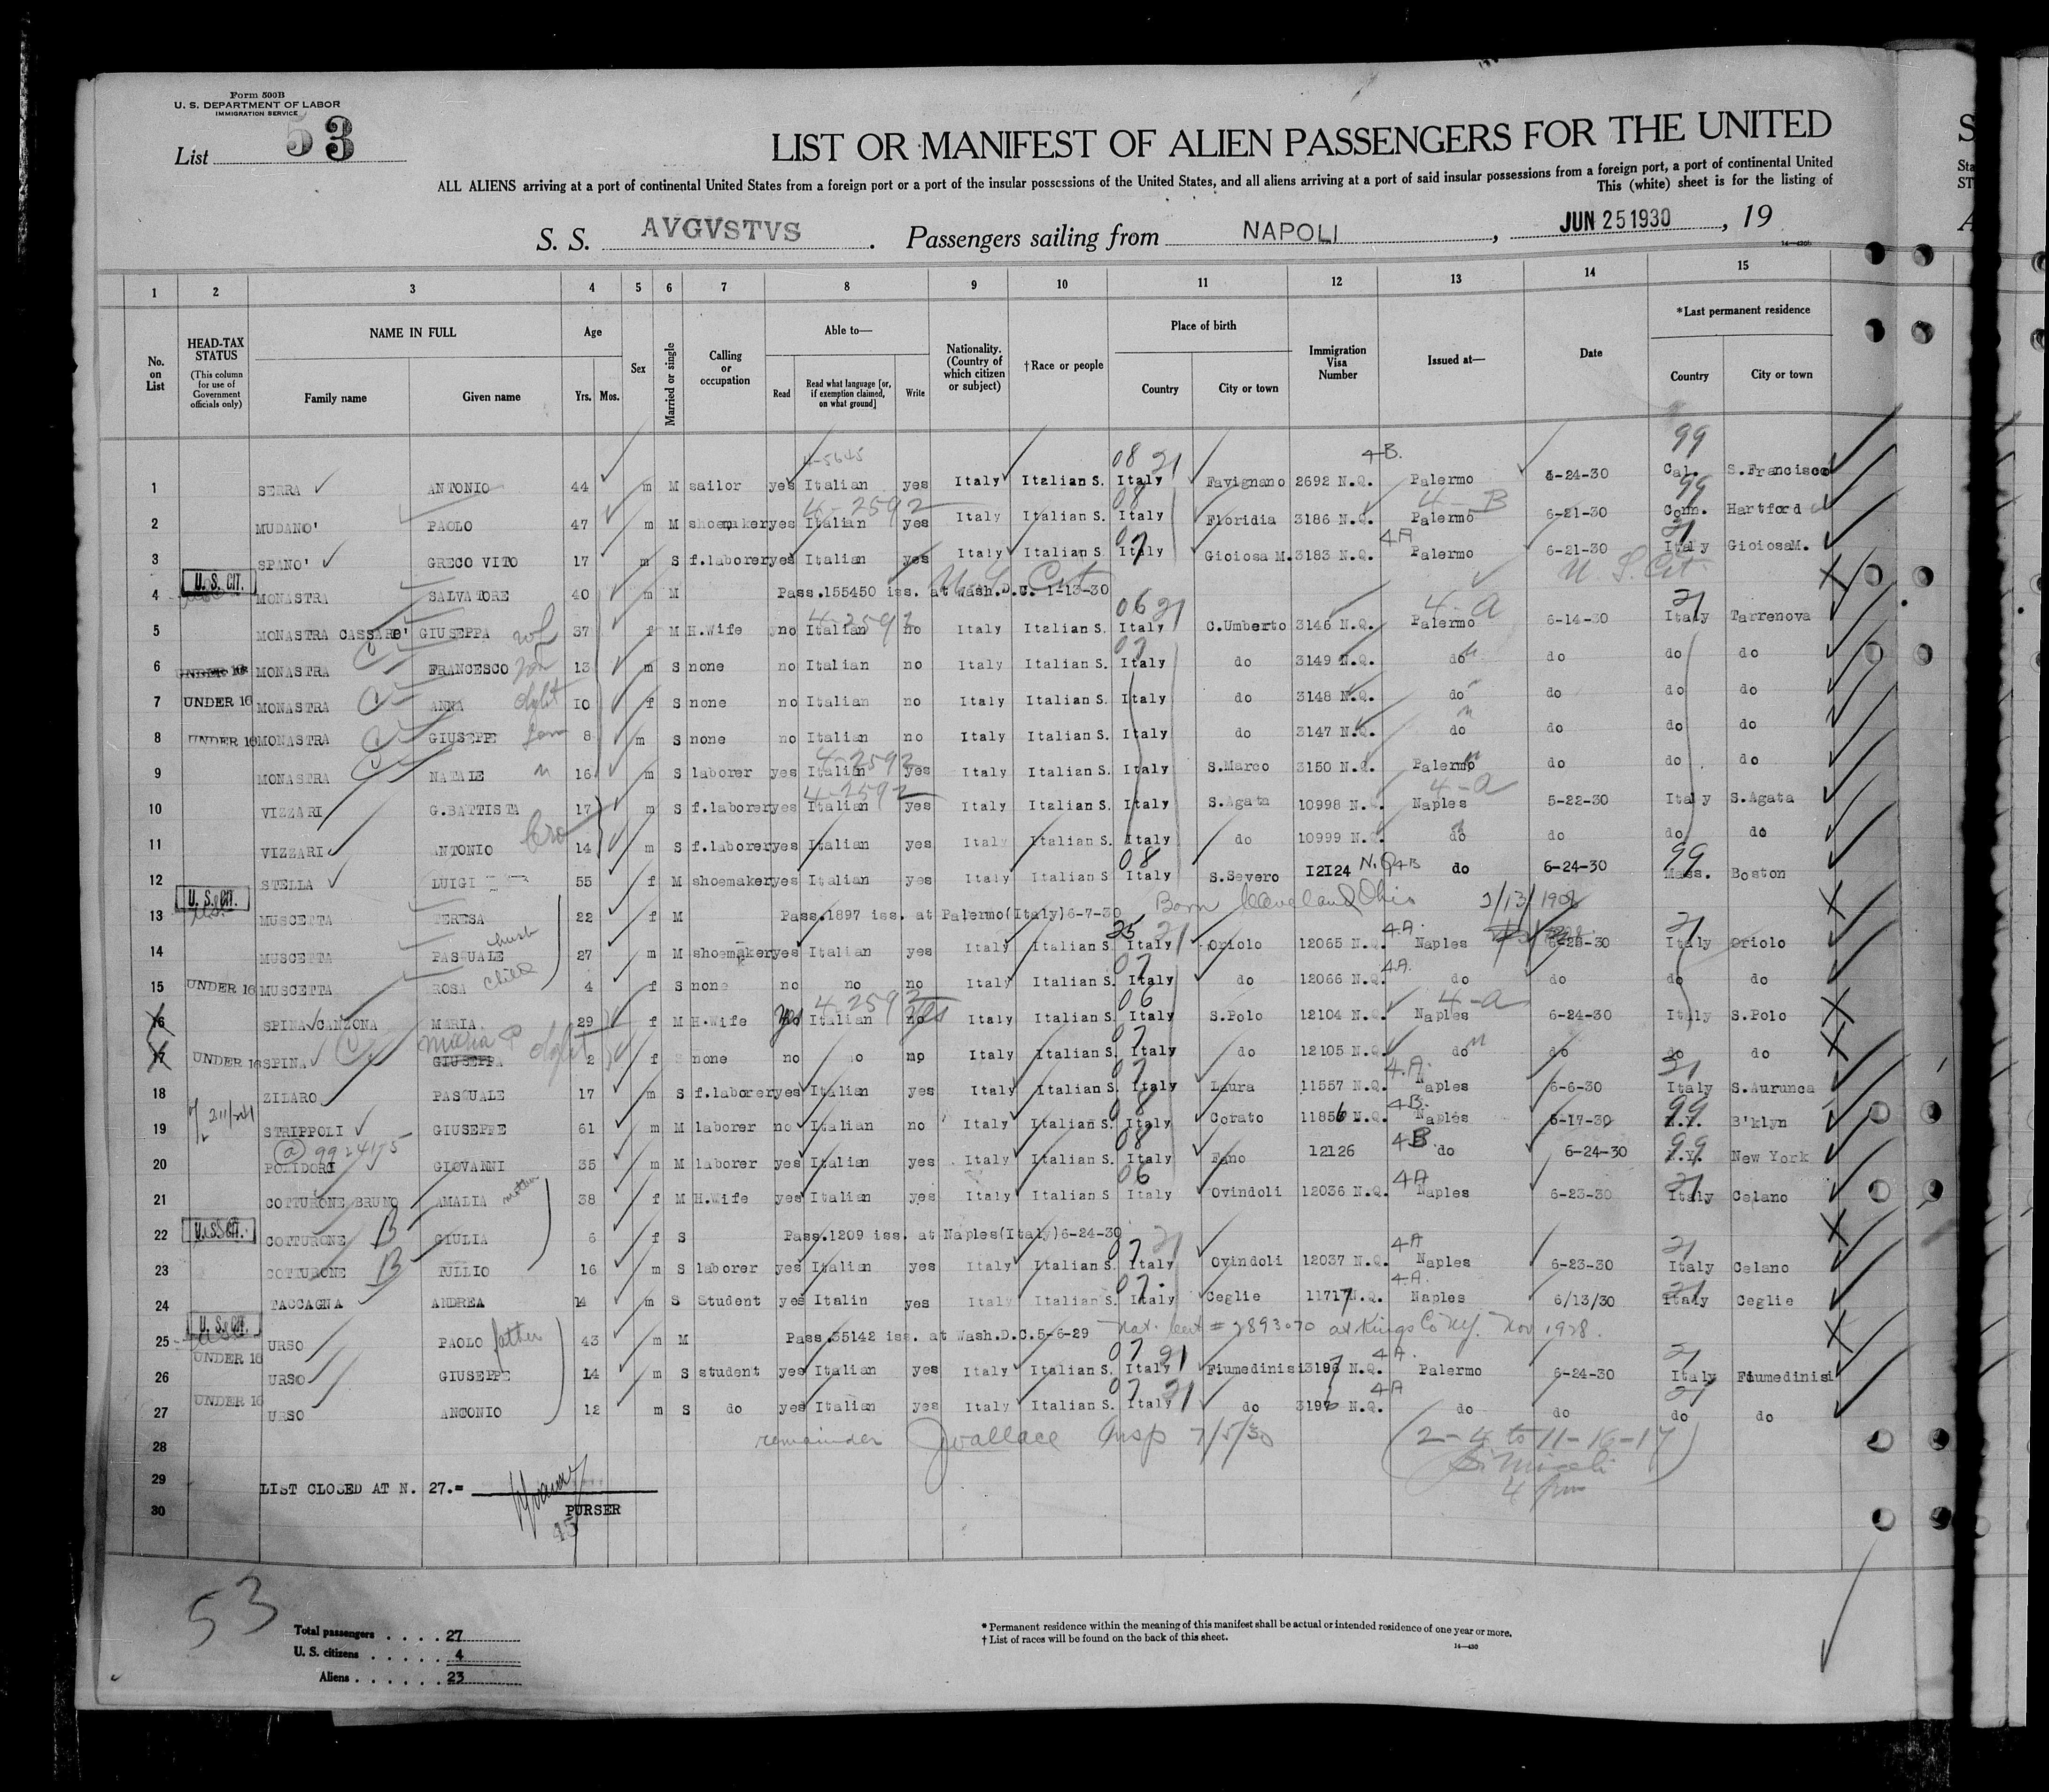 Form 500B
U. S. DEPARTMENT OF LABOR
IMMIGRATION SERVICE
List 53
LIST OR MANIFEST OF ALIEN PASSENGERS FOR THE UNITED
ALL ALIENS arriving at a port of continental United States from a foreign port or a port of the insular possessions of the United States, and all aliens arriving at a port of said insular possessions from a foreign port, a port of continental United
This (white) sheet is for the listing of
S. S. AVGVSTVS . Passengers sailing from NAPOLI , JUN 25 1930 , 19
14—430b
1 2 3 4 5 6 7 8 9 10 11 12 13 14 15
No. on List
HEAD-TAX STATUS (This column for use of Government officials only)
NAME IN FULL
Family name Given name
Age
Yrs. Mos.
Sex
Married or single
Calling or occupation
Able to—
Read Read what language [or, if exemption claimed, on what ground] Write
Nationality. (Country of which citizen or subject)
†Race or people
Place of birth
Country City or town
Immigration Visa Number
Issued at—
Date
*Last permanent residence
Country City or town
4-5645 08 21 4-B. 99
1 SERRA ANTONIO 44 m M sailor yes Italian yes Italy Italian S. Italy Favignano 2692 N.Q. Palermo 6-24-30 Cal. S.Francisco
4-2592 08 4-B 99
2 MUDANO' PAOLO 47 m M shoemaker yes Italian yes Italy Italian S. Italy Floridia 3186 N.Q. Palermo 6-21-30 Conn. Hartford
07 4A 21
3 SPANO' GRECO VITO 17 m S f.laborer yes Italian yes Italy Italian S. Italy Gioiosa M. 3183 N.Q. Palermo 6-21-30 Italy GioiosaM.
U. S. CIT. U.S. Cit U S. Cit.
4 MONASTRA SALVATORE 40 m M Pass.155450 iss. at Wash.D.C. 1-13-30
4-2592 06 21 4-a 21
5 MONASTRA CASSARO' GIUSEPPA wf 37 f M H.Wife no Italian no Italy Italian S. Italy C.Umberto 3146 N.Q. Palermo 6-14-30 Italy Tarrenova
07
6 UNDER 16 MONASTRA FRANCESCO 13 m S none no Italian no Italy Italian S. Italy do 3149 N.Q. do do do do
7 UNDER 16 MONASTRA ANNA dght 10 f S none no Italian no Italy Italian S. Italy do 3148 N.Q. do do do do
8 UNDER 16 MONASTRA GIUSEPPE son 8 m S none no Italian no Italy Italian S. Italy do 3147 N.Q. do do do do
4-2592
9 MONASTRA NATALE " 16 m S laborer yes Italian yes Italy Italian S. Italy S.Marco 3150 N.Q. Palermo do do do
4-2592 4-a
10 VIZZARI G.BATTISTA 17 m S f.laborer yes Italian yes Italy Italian S. Italy S.Agata 10998 N.Q. Naples 5-22-30 Italy S.Agata
11 VIZZARI ANTONIO bro 14 m S f.laborer yes Italian yes Italy Italian S. Italy do 10999 N.Q. do do do do
08 99
12 STELLA LUIGI 55 f M shoemaker yes Italian yes Italy Italian S Italy S.Severo 12124 N.Q 4B do 6-24-30 Mass. Boston
U. S. CIT. Born Cleveland, Ohio 2/13/1908
13 MUSCETTA TERESA 22 f M Pass.1897 iss. at Palermo(Italy)6-7-30
25 21 4A. 21
14 MUSCETTA PASQUALE husb 27 m M shoemaker yes Italian yes Italy Italian S Italy Oriolo 12065 N.Q. Naples 6-23-30 Italy Oriolo
07 4A.
15 UNDER 16 MUSCETTA ROSA child 4 f S none no no no Italy Italian S. Italy do 12066 N.Q. do do do do
4-2592 06 4-a
16 SPINA CANZONA MARIA 29 f M H.Wife yes Italian yes Italy Italian S. Italy S.Polo 12104 N.Q. Naples 6-24-30 Italy S.Polo
07
17 UNDER 16 SPINA GIUSEPPA dght 2 f S none no no no Italy Italian S. Italy do 12105 N.Q. do do do do
07 4.A. 21
18 ZILARO PASQUALE 17 m S f.laborer yes Italian yes Italy Italian S. Italy Laura 11557 N.Q. Naples 6-6-30 Italy S.Aurunca
08 4B. 99
19 STRIPPOLI GIUSEPPE 61 m M laborer no Italian no Italy Italian S. Italy Corato 11856 N.Q. Naples 6-17-30 N.Y. B'klyn
08 4B 99
20 POLIDORI GIOVANNI 35 m M laborer yes Italian yes Italy Italian S. Italy Fano 12126 do 6-24-30 N.Y. New York
06 4A 21
21 COTTURONE BRUNO AMALIA mother 38 f M H.Wife yes Italian yes Italy Italian S Italy Ovindoli 12036 N.Q. Naples 6-23-30 Italy Celano
U. S. CIT.
22 COTTURONE B GIULIA 6 f S Pass.1209 iss. at Naples(Italy)6-24-30
07 21 4A 21
23 COTTURONE B TULLIO 16 m S laborer yes Italian yes Italy Italian S. Italy Ovindoli 12037 N.Q. Naples 6-23-30 Italy Celano
07. 4A. 21
24 TACCAGNA ANDREA 14 m S Student yes Italin yes Italy Italian S. Italy Ceglie 11717 N.Q. Naples 6/13/30 Italy Ceglie
U. S. CIT.
25 URSO PAOLO father 43 m M Pass.55142 iss. at Wash.D.C.5-6-29 Nat. Cert # 2893070 at Kings Co NY. Nov 1928.
07 21 4A. 21
26 UNDER 16 URSO GIUSEPPE 14 m S student yes Italian yes Italy Italian S. Italy Fiumedinisi 3197 N.Q. Palermo 6-24-30 Italy Fiumedinisi
07 21 4A 21
27 UNDER 16 URSO ANTONIO 12 m S do yes Italian yes Italy Italian S. Italy do 3196 N.Q. do do do do
28 remainder JWallace Insp 7/5/30 (2-4 to 11-16-17)
29 LIST CLOSED AT N. 27.=
30 PURSER
53
Total passengers . . . . 27
U. S. citizens . . . . . 4
Aliens . . . . . . 23
* Permanent residence within the meaning of this manifest shall be actual or intended residence of one year or more.
† List of races will be found on the back of this sheet.
14—430